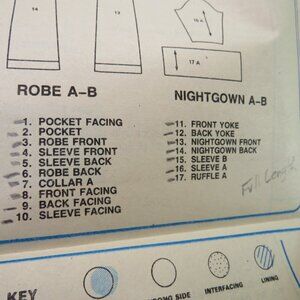 14
13
16 A
17 A
ROBE A-B
1. POCKET FACING
2. POCKET
3. ROBE FRONT
4. SLEEVE FRONT
5. SLEEVE BACK
6. ROBE BACK
7. COLLAR A
8. FRONT FACING
9. BACK FACING
10. SLEEVE FACING
NIGHTGOWN A-B
11. FRONT YOKE
12. BACK YOKE
13. NIGHTGOWN FRONT
14. NIGHTGOWN BACK
15. SLEEVE B
16. SLEEVE A
17. RUFFLE A
Full Length
KEY
SIDE
INTERFACING
LINING